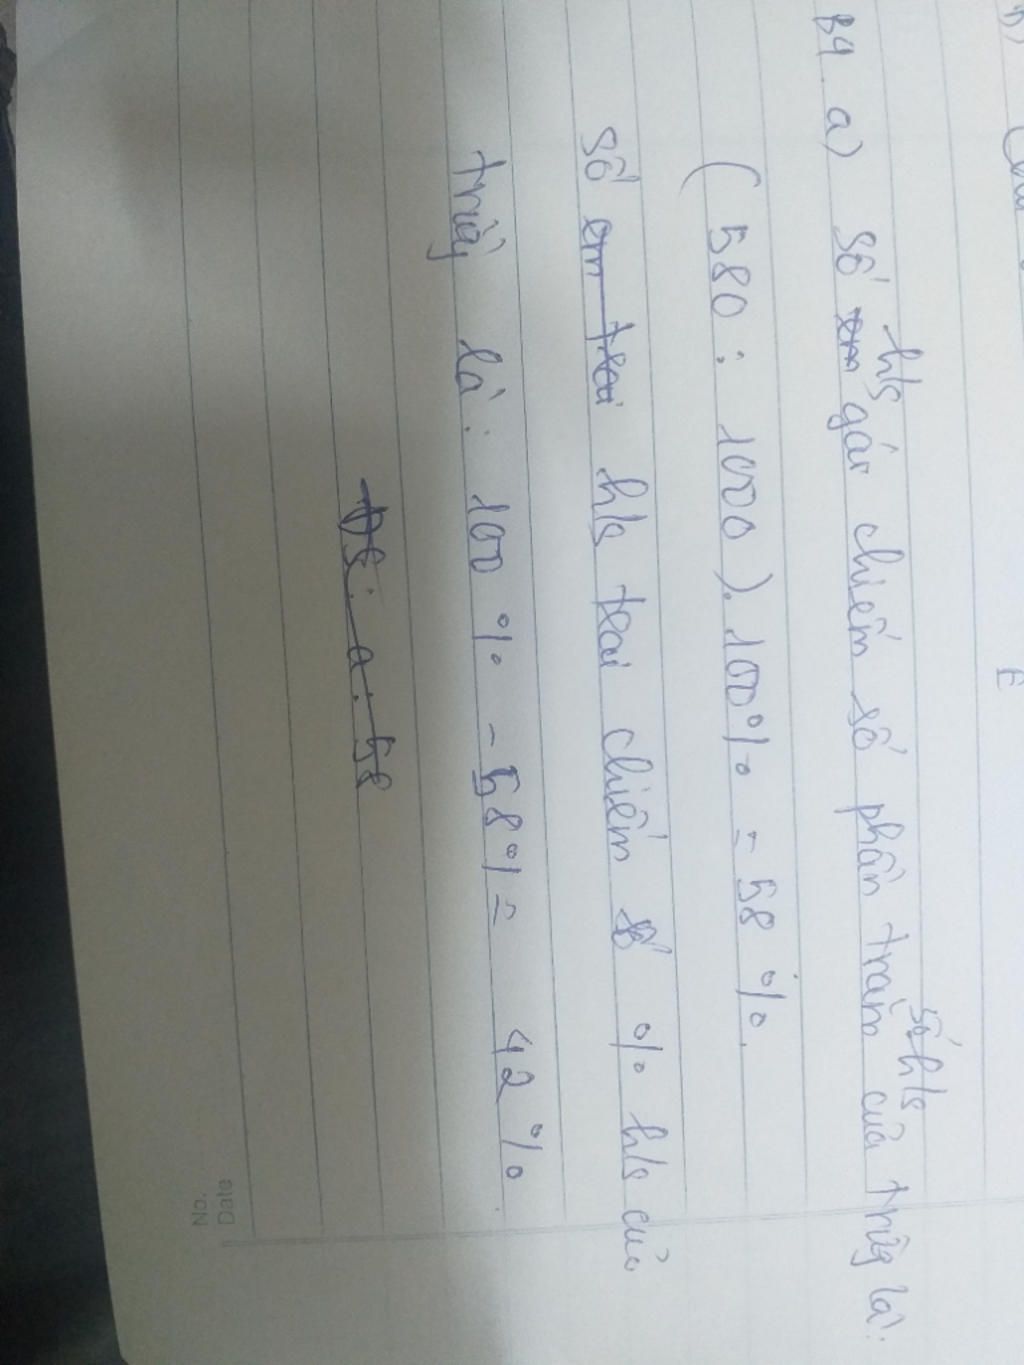 B4. a) Số h/s gái chiếm số phần trăm số h/s của trường là:
(580 : 1000).100% = 58 %.
Số h/s trai chiếm số % h/s của
trường là: 100 % - 58% = 42 %
ĐS: a: 58
No.
Date